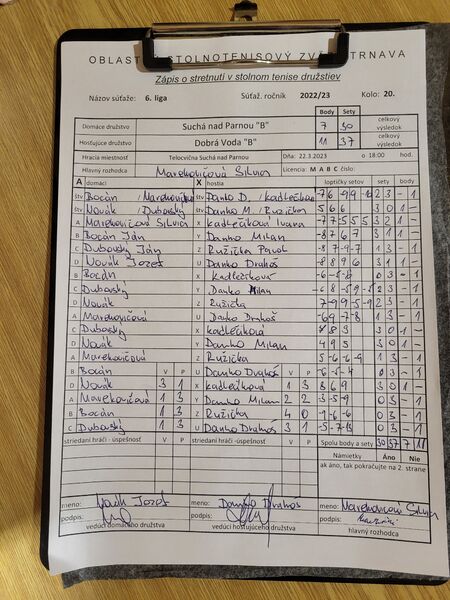 OBLAST STOLNOTENISOVÝ ZV TRNAVA
Zápis o stretnutí v stolnom tenise družstiev
Názov súťaže: 6. liga Súťaž. ročník 2022/23 Kolo: 20.
Body Sety
Domáce družstvo Suchá nad Parnou "B" 7 30 celkový výsledok
Hosťujúce družstvo Dobrá Voda "B" 11 37 celkový výsledok
Hracia miestnosť Telocvičňa Suchá nad Parnou Dňa: 22.3.2023 o 18:00 hod.
Hlavný rozhodca Marekovičová Silvia Licencia: M A B C číslo:
A domáci X hostia loptičky setov sety body
štv Bočán / Marekovičová štv Danko D. / Kadlečíková 23 -1
štv Novák / Dubovský štv Danko M. / Ružička 566 30 1-
A Marekovičová Silvia X Kadlečíková Ivana 32 1-
B Bočán Ján Y Danko Milan 31 1-
C Dubovský Ján Z Ružička Pavol 13 -1
D Novák Jozef U Danko Drahoš 31 1-
B Bočán X Kadlečíková -6-5-8 03 -1
C Dubovský Y Danko Milan 23 -1
D Novák Z Ružička 23 -1
A Marekovičová U Danko Drahoš 13 -1
C Dubovský X Kadlečíková 30 1-
D Novák Y Danko Milan 493 30 1-
A Marekovičová Z Ružička 5-6-6-9 13 -1
B Bočán V P U Danko Drahoš V P -6-5-4 03 -1
D Novák 3 1 X Kadlečíková 1 3 869 30 1-
A Marekovičová 1 3 Y Danko Milan 2 2 03 -1
B Bočán 1 3 Z Ružička 4 0 03 -1
C Dubovský 1 3 U Danko Drahoš 3 1 03 -1
striedaní hráči - úspešnosť V P striedaní hráči - úspešnosť V P Spolu body a sety 30 37 7 11
Námietky Áno Nie
ak áno, tak pokračujte na 2. strane
meno: Novák Jozef meno: Danko Drahoš meno: Marekovičová Silvia
podpis: podpis: podpis:
vedúci domáceho družstva vedúci hosťujúceho družstva hlavný rozhodca